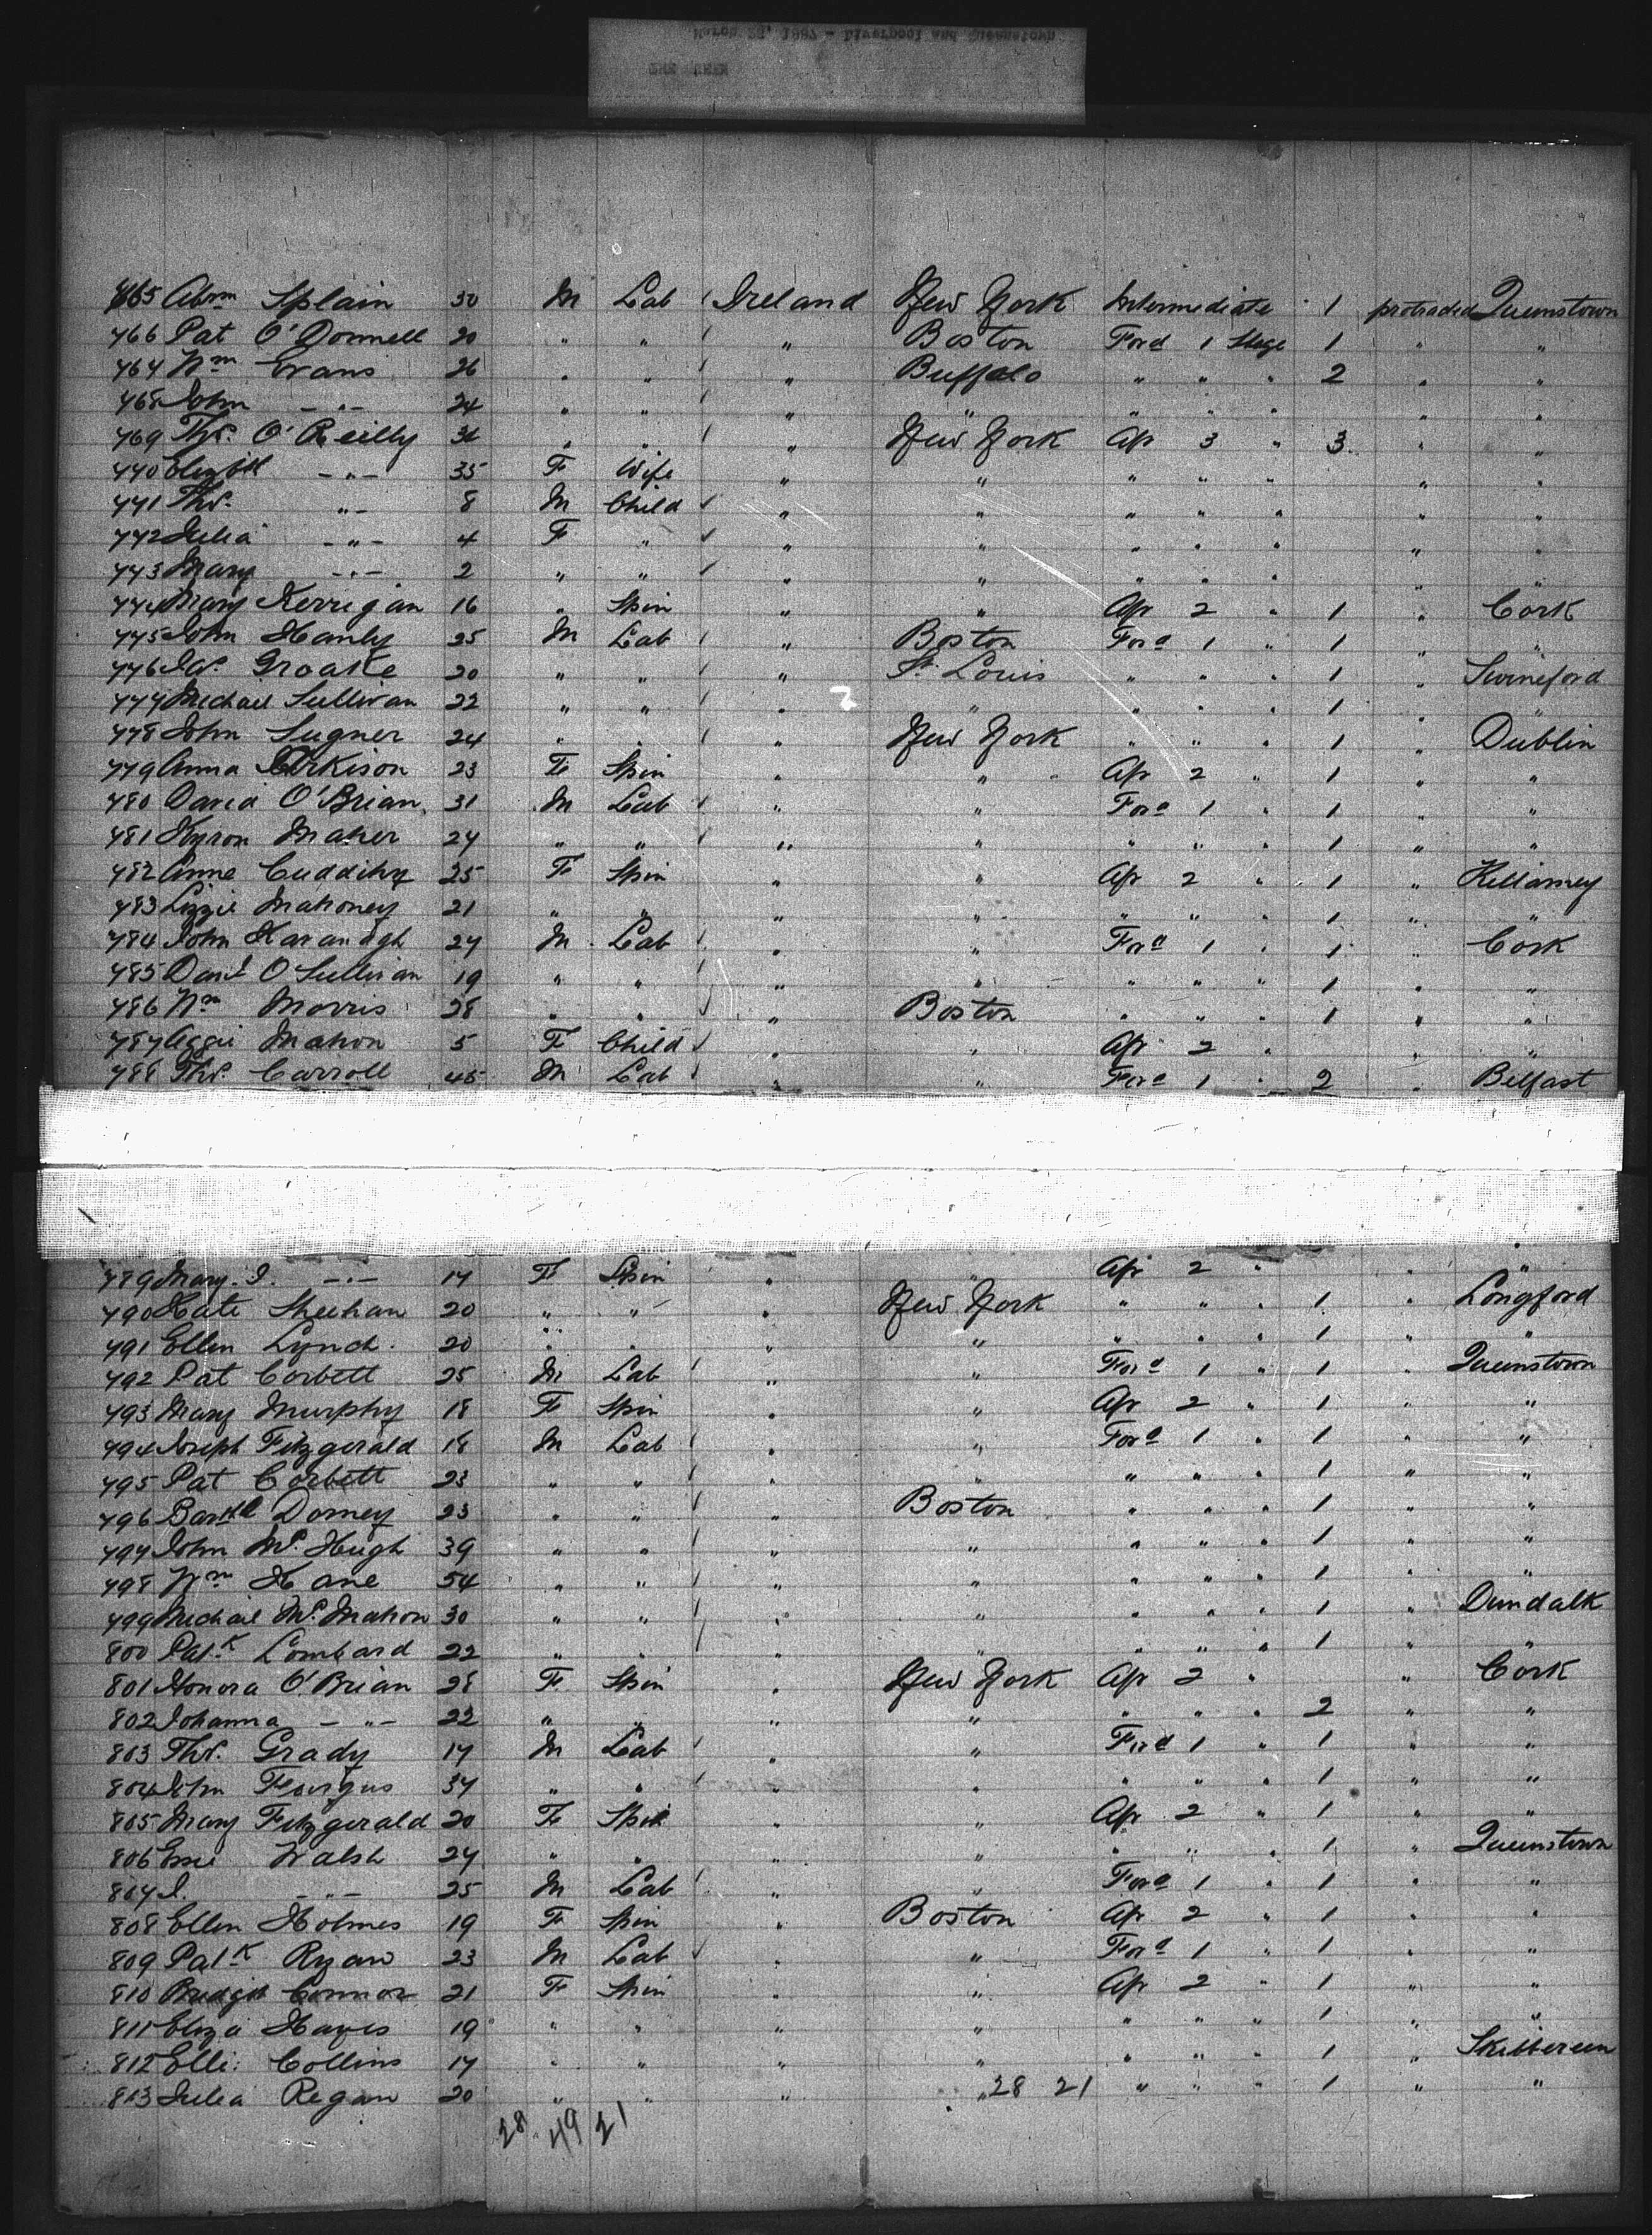 765 Abrm Splain 30 M Lab Ireland New York Intermediate 1 protracted Queenstown
766 Pat O'Donnell 20 " " " Boston Ford 1 Stege 1 " "
767 Wm Evans 26 " " " Buffalo " " " 2 " "
768 John -"- 24 " " " " " " " " "
769 Ths. O'Reilly 36 " " " New York Ap 3 " 3 " "
770 Elizbth -"- 35 F Wife " " " " " " "
771 Ths. "- 8 M Child " " " " " " "
772 Julia -"- 4 F " " " " " " " "
773 Mary -"- 2 " " " " " " " " "
774 Mary Kerrigan 16 " Spin " " Ap 2 " 1 " Cork
775 John Hanly 25 M Lab " Boston Ford 1 " 1 " "
776 Groake 20 " " " St. Louis " " " 1 " Swineford
777 Michael Sullivan 22 " " " " " " " 1 " "
778 John Lugner 24 " " " New York " " " 1 " Dublin
779 Anna Arkison 23 F Spin " " Ap 2 " 1 " "
780 David O'Brian 31 M Lab " " Ford 1 " 1 " "
781 Kyron Maher 24 " " " " " " " 1 " "
782 Anne Cuddihy 25 F Spin " " Ap 2 " 1 " Killarney
783 Lizzie Mahoney 21 " " " " " " " 1 " "
784 John Kavanagh 27 M Lab " " Ford 1 " 1 " Cork
785 Danl O'Sullivan 19 " " " " " " " 1 " "
786 Wm Morris 28 " " " Boston " " " 1 " "
787 Aggie Mahon 5 F Child " " Ap 2 " " "
788 Ths. Carroll 45 M Lab " " Ford 1 " 2 " Belfast
789 Mary J. -"- 17 F Spin " " Ap 2 " " "
790 Kate Sheehan 20 " " " New York " " " 1 " Longford
791 Ellen Lynch 20 " " " " " " " 1 " "
792 Pat Corbett 25 M Lab " " Ford 1 " 1 " Queenstown
793 Mary Murphy 18 F Spin " " Ap 2 " 1 " "
794 Joseph Fitzgerald 18 M Lab " " Ford 1 " 1 " "
795 Pat Corbett 23 " " " " " " " 1 " "
796 Barthl Dorney 23 " " " Boston " " " 1 " "
797 John Mc.Hugh 39 " " " " " " " 1 " "
798 Wm Kane 54 " " " " " " " 1 " "
799 Michael Mc.Mahon 30 " " " " " " " 1 " Dundalk
800 Patk Lombard 22 " " " " " " " 1 " "
801 Honora O'Brian 28 F Spin " New York Ap 2 " " Cork
802 Johanna -"- 22 " " " " " " " 2 " "
803 Ths. Grady 17 M Lab " " Ford 1 " 1 " "
804 John Fergus 37 " " " " " " " 1 " "
805 Mary Fitzgerald 20 F Spin " " Ap 2 " 1 " "
806 Walsh 24 " " " " " " " 1 " Queenstown
807 J. -"- 25 M Lab " " Ford 1 " 1 " "
808 Ellen Holmes 19 F Spin " Boston Ap 2 " 1 " "
809 Patk Ryan 23 M Lab " " Ford 1 " 1 " "
810 Bridget Connor 21 F Spin " " Ap 2 " 1 " "
811 Eliza Hayes 19 " " " " " " " 1 " "
812 Elli: Collins 17 " " " " " " " 1 " Skibbereen
813 Julia Regan 20 " " " " 28 21 " " " 1 " "
28 49 21